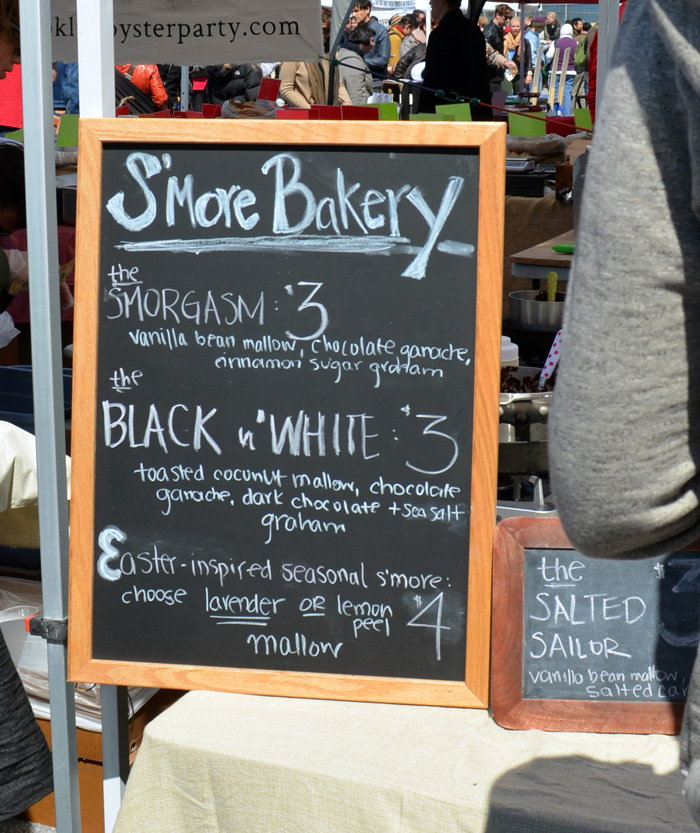 oysterparty.com
S'More Bakery
the
SMORGASM: $3
vanilla bean mallow, chocolate ganache,
cinnamon sugar graham
the
BLACK n' WHITE: $3
toasted coconut mallow, chocolate
ganache, dark chocolate + sea salt
graham
Easter-inspired seasonal s'more:
choose lavender OR lemon
peel $4
mallow
the
SALTED
SAILOR
vanilla bean mallow,
salted